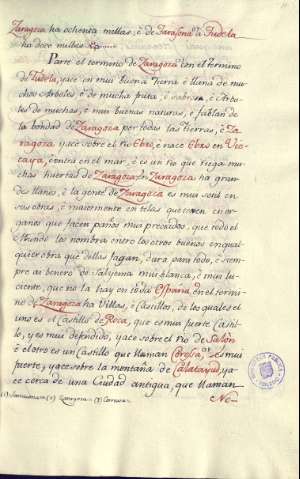 Zaragoza ha ochenta millas; è de Tarasona à Tudela
ha doce millas
Parte el termino de Zaragoza con el termino
de Tudela, yace en mui buena tierra è llana de mu-
chos arboles è de mucha fruta, è sabrosa, è Arbo-
les de muchas, è mui buenas naturas, è fablan de
la bondad de Zaragoza por todas las tierras, è Za-
ragoza yace sobre el rio Ebro, è nace Ebro en Viz-
caya, è entra en el mar, è es un rio que riega mu-
chas huertas de Zaragoza, è Zaragoza ha gran-
des llanos, è la gente de Zaragoza es mui sotil en
sus obras, è maiormente en telas que texen en or-
ganos que facen paños mui preciados, que todo el
Mundo los nombra entre los otros buenos en qual-
quier obra que dellas fagan, dura para todo, è siem-
pre ai venero de Salgema mui blanca, è mui lu-
ciente, que no la hay en toda España en el termi-
no de Zaragoza ha Villas, è Castillos, de los quales el
uno es el Castillo de Roca, que es mui fuerte Casti-
llo, y es mui defendido, yace sobre el rio de Salon
è el otro es un Castillo que llaman es mui
fuerte, yace sobre la montaña de Calatayud, ya-
ce cerca de una Ciudad antigua, que llaman
No-
Zaragoza